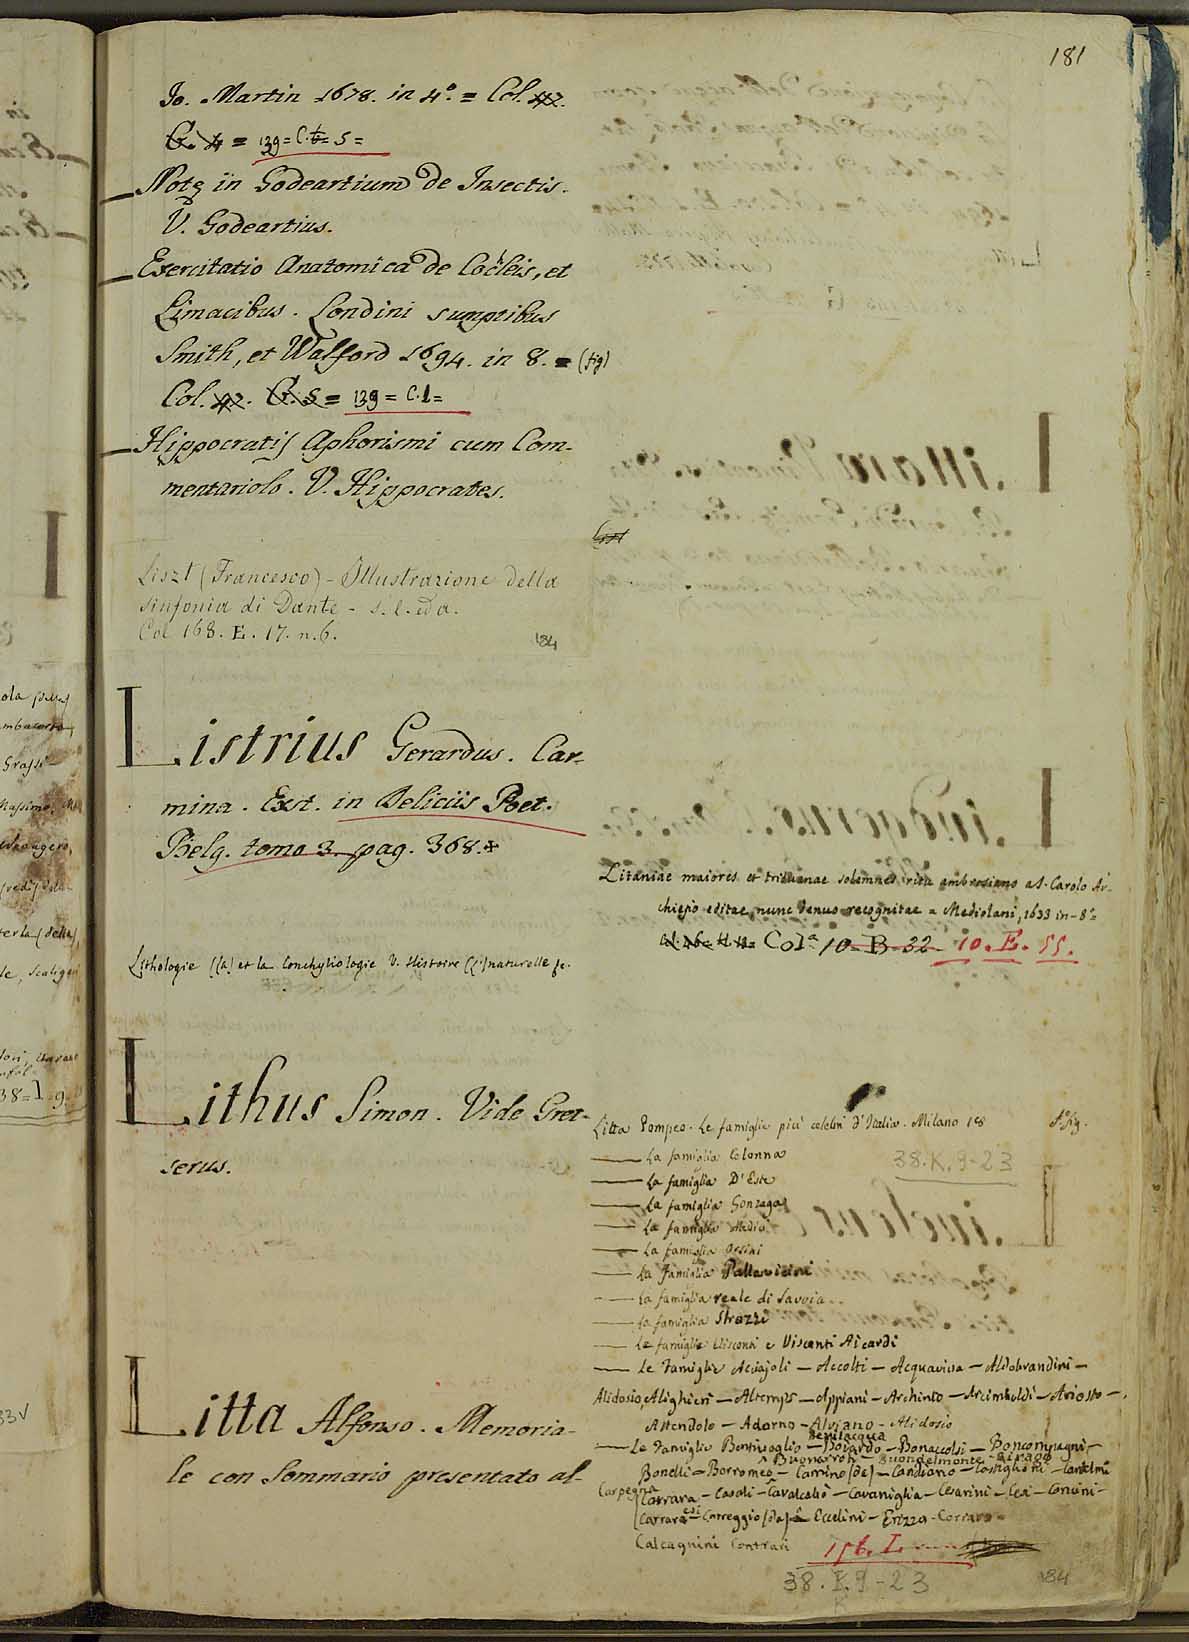 181
Io. Martin 1678. in 4°. = Col. 42.
G. 4 = 139 = C. t = 5 =
Notę in Godeartium de Insectis.
V. Godeartius.
Exercitatio Anatomica de Cocleis, et
Limacibus. Londini sumptibus
Smith, et Walford 1694. in 8. = (fig)
Col. 42. G. 5 = 139 = C. 1 =
Hippocratis Aphorismi cum Com-
mentariolo. V. Hippocrates.
List
Liszt (Francesco) - Illustrazione della
sinfonia di Dante - s. l. ed a.
Col 168. E. 17. n. 6.
184
Listrius Gerardus. Car-
mina. Ext. in Deliciis Poet.
Belg. tomo 3. pag. 368. *
Lithologie (la) et la Conchyliologie V. Histoire (l') naturelle &c.
Lithus Simon. Vide Gret-
serus.
Litta Alfonso. Memoria-
le con Sommario presentato al-
Litaniae maiores et triduanae solemnes ritu ambrosiano a S. Carolo Ar-
chiepo editae, nunc denuo recognitae = Mediolani, 1633 in-8°=
Col.a 10-B-22 10. E. 55.
Litta Pompeo. Le famiglie più celebri d'Italia. Milano 18 f° fig.
— La famiglia Colonna
38. K. 9-23
— La famiglia D'Este
— La famiglia Gonzaga
— La famiglia Medici
— La famiglia Orsini
— La Famiglia Pallavicini
— La famiglia reale di Savoia
— La famiglia Strozzi
— Le famiglie Visconti e Visconti Aicardi
— Le Famiglie Acciajoli — Accolti — Acquaviva — Aldobrandini —
Alidosio, Alighieri — Altemps — Appiani — Archinto — Arcimboldi — Ariosto —
Attendolo — Adorno — Alviano — Alidosio
Bevilacqua
— Le Famiglie Bentivoglio — Bojardo — Bonaccolsi — Boncompagni —
Buonarroti — Buondelmonte — Birago
Bonelli — Borromeo — Camino (da) — Candiano — Castiglioni — Cantelmi
Carpegna
Carrara — Casali — Cavalcabò — Cavaniglia — Cesarini — Cesi — Concini —
Carraresi — Correggio (da) — Eccelini — Erizzo — Corraro
Calcagnini Contrari
156. I.
38. K. 9-23
184